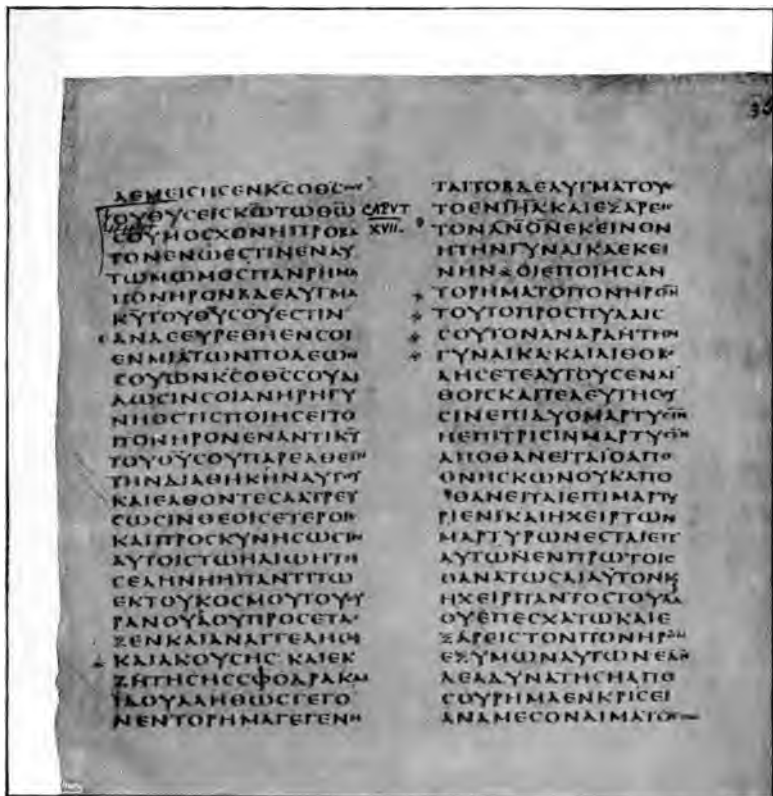 ΛΕΜΕΙCΗCΕΝΚ̅C̅ΟΘ̅C̅
ΟΥΘΥCΕΙCΚ̅Ω̅ΤΩΘ̅Ω̅
CAPVT
XVII.
CΟΥΜΟCΧΟΝΗΠΡΟΒΑ
ΤΟΝΕΝΩΕCΤΙΝΕΝΑΥ
ΤΩΜΩΜΟCΠΑΝΡΗΜΑ
ΠΟΝΗΡΟΝΒΔΕΛΥΓΜΑ
Κ̅Υ̅ΤΟΥΘ̅Υ̅CΟΥΕCΤΙΝ
ΑΝΔΕΕΥΡΕΘΗΕΝCΟΙ
ΕΝΜΙΑΤΩΝΠΟΛΕΩΝ
CΟΥΩΝΚ̅C̅ΟΘ̅C̅CΟΥΔΙ
ΔΩCΙΝCΟΙΑΝΗΡΗΓΥ
ΝΗΟCΤΙCΠΟΙΗCΕΙΤΟ
ΠΟΝΗΡΟΝΕΝΑΝΤΙΚ̅Υ̅
ΤΟΥΘ̅Υ̅CΟΥΠΑΡΕΛΘΕΙΝ
ΤΗΝΔΙΑΘΗΚΗΝΑΥΤΟΥ
ΚΑΙΕΛΘΟΝΤΕCΛΑΤΡΕΥ
CΩCΙΝΘΕΟΙCΕΤΕΡΟΙC
ΚΑΙΠΡΟCΚΥΝΗCΩCΙΝ
ΑΥΤΟΙCΤΩΗΛΙΩΗΤΗ
CΕΛΗΝΗΗΠΑΝΤΙΤΩ
ΕΚΤΟΥΚΟCΜΟΥΤΟΥΟΥ
ΡΑΝΟΥΑΟΥΠΡΟCΕΤΑ
ΞΕΝΚΑΙΑΝΑΓΓΕΛΗCΟΙ
ΚΑΙΑΚΟΥCΗCΚΑΙΕΚ
ΖΗΤΗCΗCCΦΟΔΡΑΚΑΙ
ΙΔΟΥΑΛΗΘΩCΓΕΓΟ
ΝΕΝΤΟΡΗΜΑΓΕΓΕΝΗ
36
ΤΑΙΤΟΒΔΕΛΥΓΜΑΤΟΥ
ΤΟΕΝΙΗΛ̅ΚΑΙΕΞΑΡΕΙC
ΤΟΝΑΝ̅Ο̅Ν̅ΕΚΕΙΝΟΝ
ΗΤΗΝΓΥΝΑΙΚΑΕΚΕΙ
ΝΗΝΟΙΕΠΟΙΗCΑΝ
ΤΟΡΗΜΑΤΟΠΟΝΗΡΟΝ
ΤΟΥΤΟΠΡΟCΠΥΛΑΙC
CΟΥΤΟΝΑΝΔΡΑΗΤΗΝ
ΓΥΝΑΙΚΑΚΑΙΛΙΘΟΒΟ
ΛΗCΕΤΕΑΥΤΟΥCΕΝΛΙ
ΘΟΙCΚΑΙΤΕΛΕΥΤΗCΟΥ
CΙΝΕΠΙΔΥΟΜΑΡΤΥCΙΝ
ΗΕΠΙΤΡΙCΙΝΜΑΡΤΥCΙΝ
ΑΠΟΘΑΝΕΙΤΑΙΟΑΠΟ
ΘΝΗCΚΩΝΟΥΚΑΠΟ
ΘΑΝΕΙΤΑΙΕΠΙΜΑΡΤΥ
ΡΙΕΝΙΚΑΙΗΧΕΙΡΤΩΝ
ΜΑΡΤΥΡΩΝΕCΤΑΙΕΠ
ΑΥΤΩΝΕΝΠΡΩΤΟΙC
ΘΑΝΑΤΩCΑΙΑΥΤΟΝΚ
ΗΧΕΙΡΠΑΝΤΟCΤΟΥΛΑ
ΟΥΕΠΕCΧΑΤΩΚΑΙΕ
ΞΑΡΕΙCΤΟΝΠΟΝΗΡΟΝ
ΕΞΥΜΩΝΑΥΤΩΝΕΑΝ
ΔΕΑΔΥΝΑΤΗCΗΑΠΟ
CΟΥΡΗΜΑΕΝΚΡΙCΕΙ
ΑΝΑΜΕCΟΝΑΙΜΑΤΟC